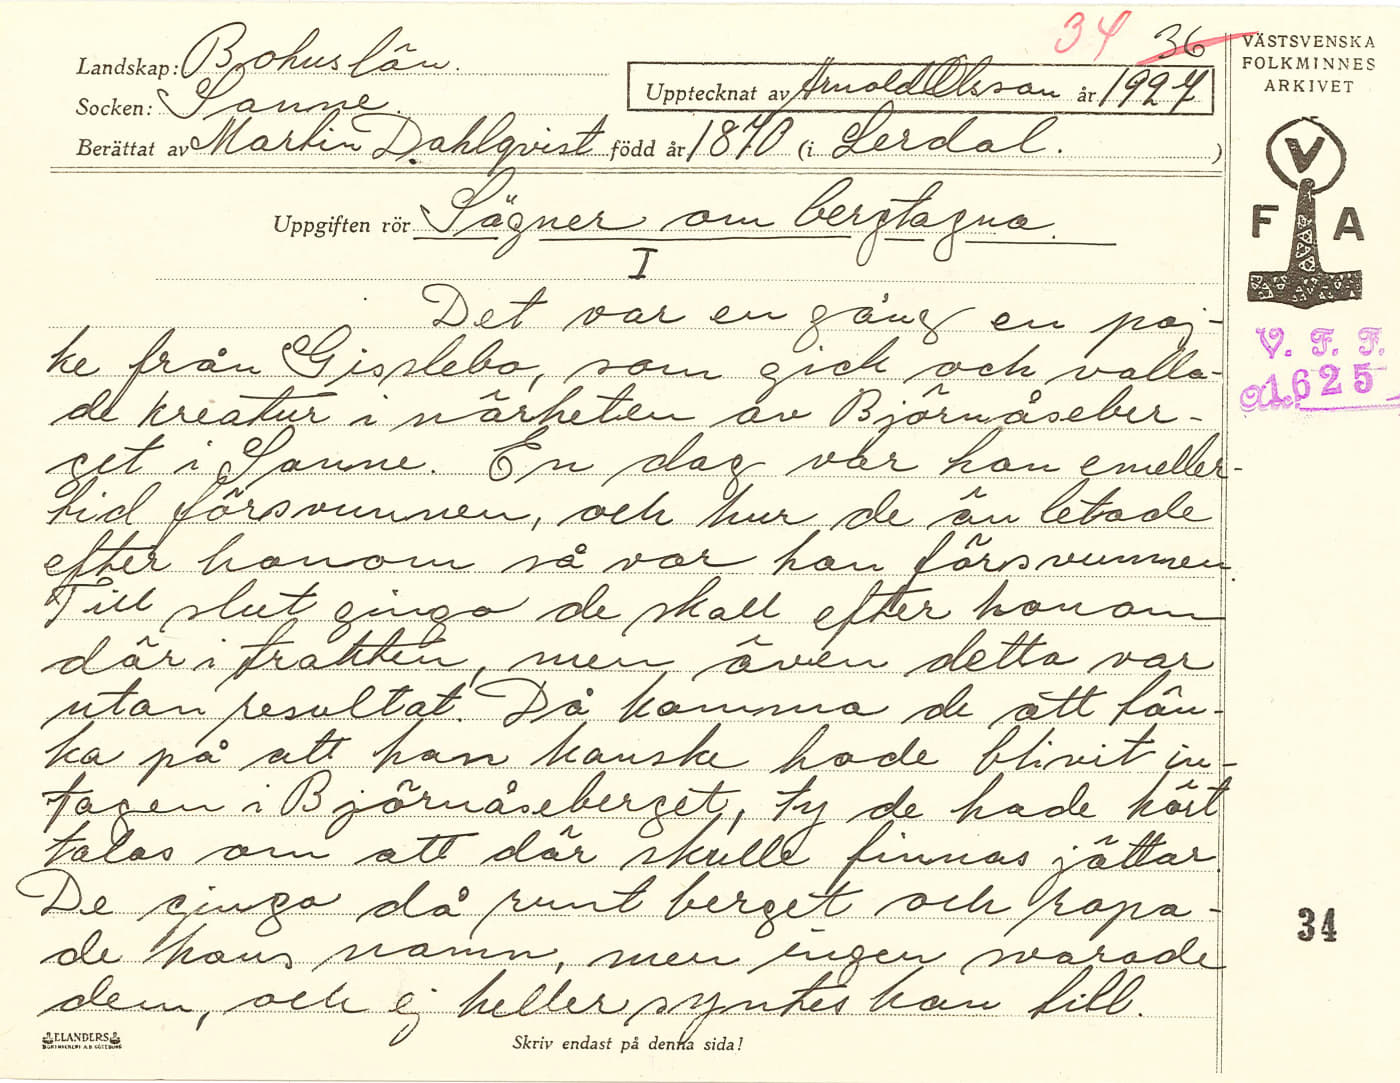 34 36
Landskap: Bohuslän.
Socken: Sanne.
Upptecknat av Arnold Olsson år 1927
Berättat av Martin Dahlqvist född år 1870 (i Lerdal. )
VÄSTSVENSKA
FOLKMINNES
ARKIVET
V
F A
V. F. F.
1625
Uppgiften rör Sägner om bergtagna.
I
Det var en gång en poj-
ke från Gisslebo, som gick och valla-
de kreatur i närheten av Björnåseber-
get i Sanne. En dag var han emeller-
tid försvunnen, och hur de än letade
efter honom så var han försvunnen.
Till slut gingo de skall efter honom
där i trakten, men även detta var
utan resultat. Då komma de att tän-
ka på att han kanske hade blivit in-
tagen i Björnåseberget, ty de hade hört
talas om att där skulle finnas jättar.
De gingo då runt berget och ropa-
de hans namn, men ingen svarade
dem, och ej heller syntes han till.
34
ELANDERS
BOKTRYCKERI A.B. GÖTEBORG
Skriv endast på denna sida!